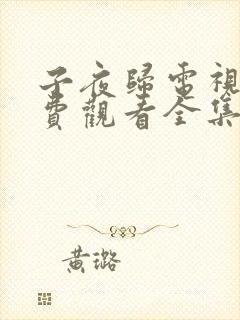 子夜歸電視
費觀看全集
黃璐